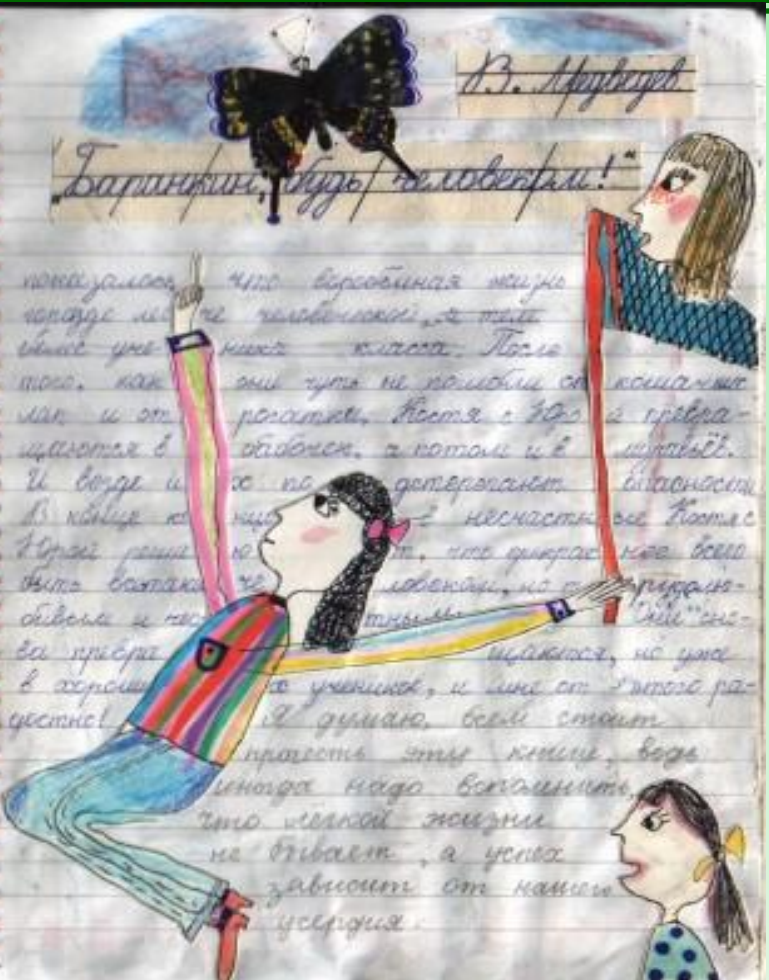 В. Медведев
„Баранкин, будь человеком!“
показалось, что воробьиная жизнь
гораздо легче человеческой, а тем
более ученика класса. После
того, как они чуть не погибли от кошачьих
лап и от рогатки, Костя с Юрой превра-
щаются в бабочек, а потом и в муравьёв.
И везде их подстерегают опасности
В конце концов несчастные Костя с
Юрой решают, что прекраснее всего
быть всётаки человеком, но трудолю-
бивым и честным. Они сно-
ва превращаются, но уже
в хороших учеников, и мне от этого ра-
достно! Я думаю, всем стоит
прочесть эту книгу, ведь
иногда надо вспомнить,
что лёгкой жизни
не бывает, а успех
зависит от нашего
усердия.